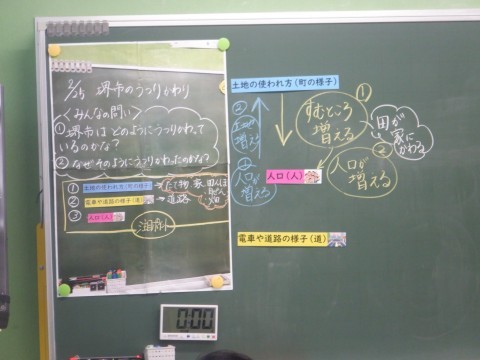 2/15 堺市のうつりかわり
＜みんなの問い＞
①堺市はどのようにうつりかわって
いるのかな?
②なぜそのようにうつりかわったのかな?
① 土地の使われ方(町の様子) →たて物 家 田んぼ
・畑
② 電車や道路の様子(道) →道路
③ 人口(人)
土地の使われ方(町の様子)
①
すむところ
増える
田が
家に
かわる
②
増える
①
人口が
増える
人口(人)
②
人口が
増える
電車や道路の様子(道)
0:00